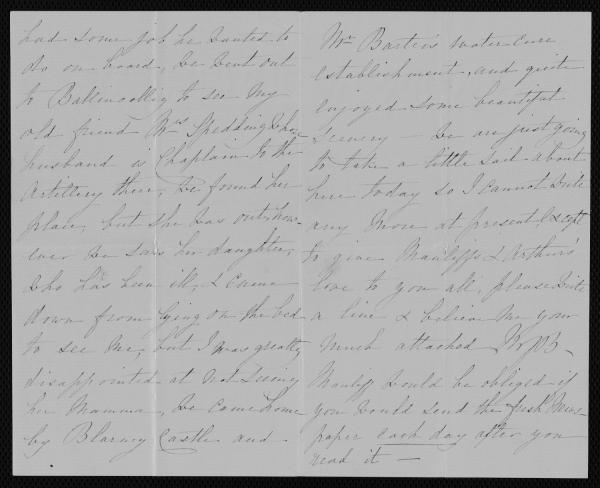 had some job he wanted to
do on board, we went out
to Ballincollig to see my
old friend Mrs Spedding whose
husband is Chaplain to the
Artillery there, we found her
place, but she was out, how-
ever we saw her daughter,
who has been ill, & came
down from lying on the bed
to see me, but I was greatly
disappointed at not seeing
her Mamma, we came home
by Blarney Castle and
Mr Barter's water cure
establishment, and quite
enjoyed some beautiful
Scenery — we are just going
to take a little sail about
here today so I cannot write
any more at present, except
to give & Arthur's
love to you all, please write
a line & believe me your
much attached
would be obliged if
you would send the fresh News-
paper each day after you
read it —